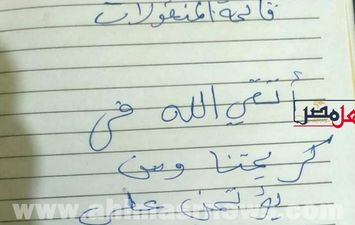 قائمة المنقولات
أتقي الله في
كريمتنا ومن
يؤتمن على
أهل مصر
www.ahlmasrnews.com